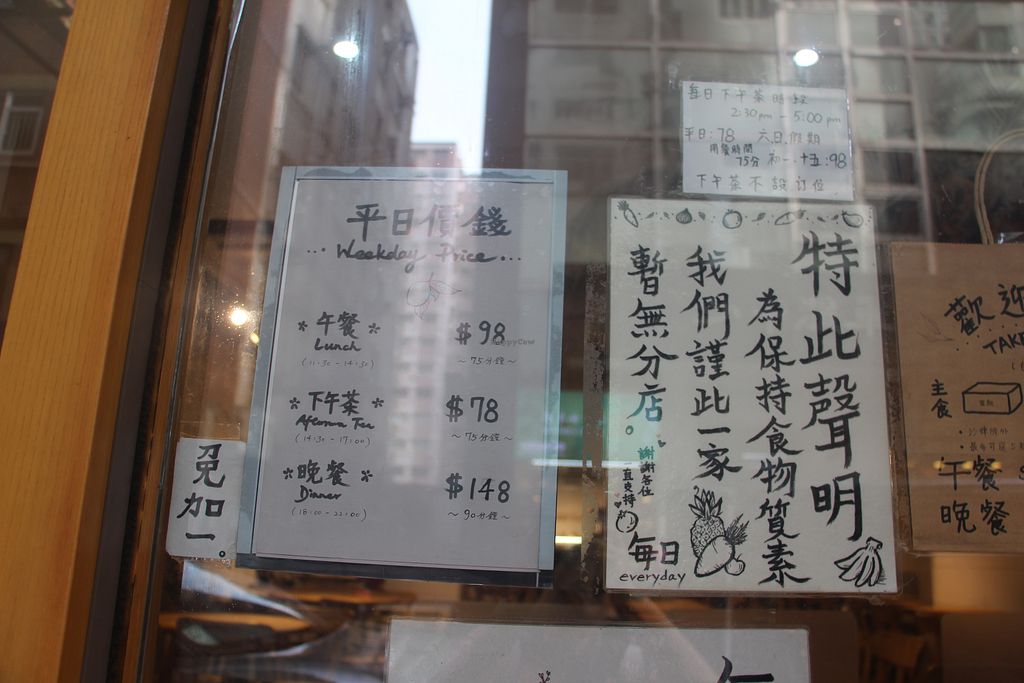 平日價錢
... Weekday Price ...
* 午餐 *
Lunch
(11:30 - 14:30)
$98
~ 75分鐘 ~
* 下午茶 *
Afternoon Tea
(14:30 - 17:00)
$78
~ 75分鐘 ~
* 晚餐 *
Dinner
(18:00 - 22:00)
$148
~ 90分鐘 ~
免加一。
每日下午茶時段
2:30pm - 5:00 pm
平日:78 六日假期
用餐時間
75分 初一.十五:98
下午茶不設訂位
特此聲明
為保持食物質素
我們謹此一家
暫無分店。
謝謝各位
一直支持
每日
everyday
歡迎
TAKE
主食
午餐
晚餐
HappyCow